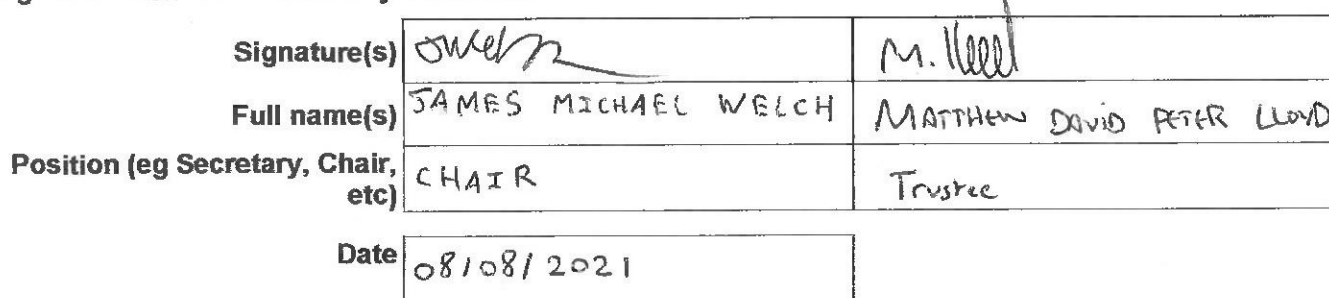 Signature(s) M. Lloyd
Full name(s) JAMES MICHAEL WELCH MATTHEW DAVID PETER LLOYD
Position (eg Secretary, Chair, etc) CHAIR Trustee
Date 08/08/2021